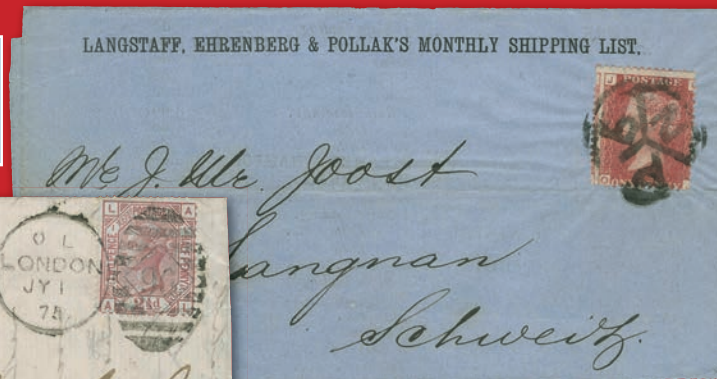 LANGSTAFF, EHRENBERG & POLLAK'S MONTHLY SHIPPING LIST.
J POSTAGE
Joost
Langnau
Schweitz.
O L
LONDON
JY 1
75
L A
A L